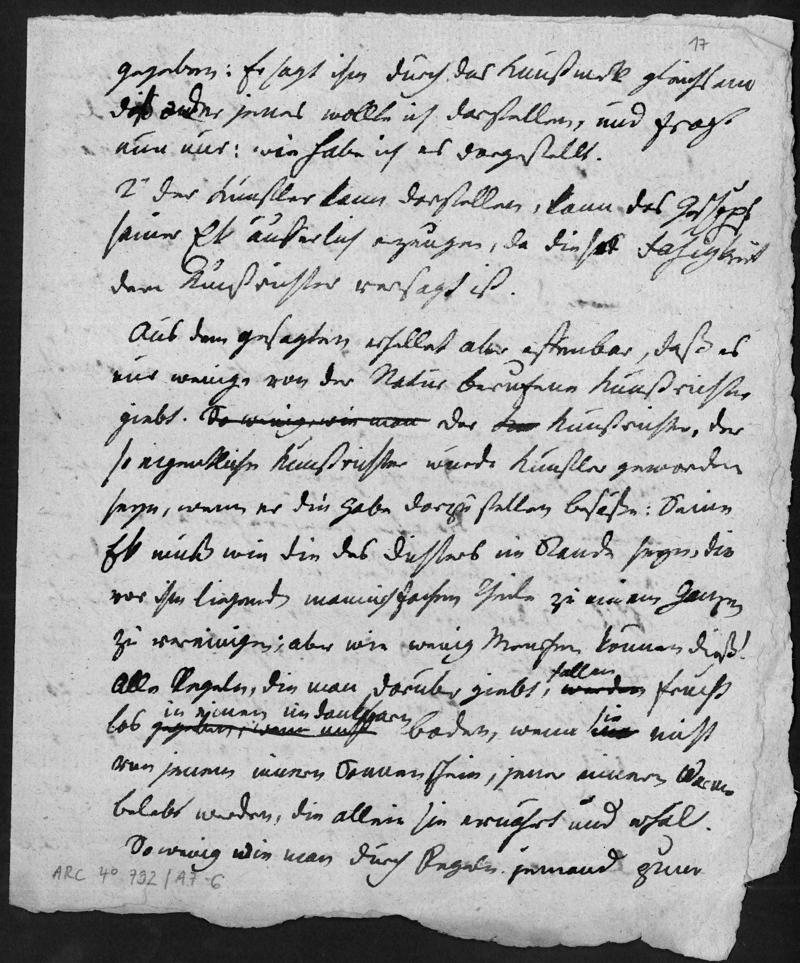 17
gegeben: Er sagt ihm durch das Kunstwerk gleichsam
dieß oder jenes wollte ich darstellen, und fragt
nun nur: wie habe ich es dargestellt.
2 der Künstler kann darstellen, kann das
seiner EK äusserlich erzeugen, da diese Fähigkeit
dem Kunstrichter versagt ist.
Aus dem gesagten erhellet aber offenbar, daß es
nur wenige von der Natur berufene Kunstrichter
giebt. So wenig wie man Der Kunstrichter, der
so eigentliche Kunstrichter würde Künstler geworden
seyn, wenn er die Gabe darzustellen besäße: Seine
EK muß wie die des Dichters im Stande seyn, die
vor ihm liegenden mannichfachen Theile zu einem Ganzen
zu vereinigen; aber wie wenig Menschen können dieß!
Alle Regeln, die man darüber giebt, werden fallen frucht
los in einen undankbaren boden, wenn sie nicht
von jenem innern Sonnenschein, jener innern Wärme
belebt werden, die allein sie ernährt und erhält.
So wenig wie man durch Regeln jemand zum
ARC 4° 792 / A7-6